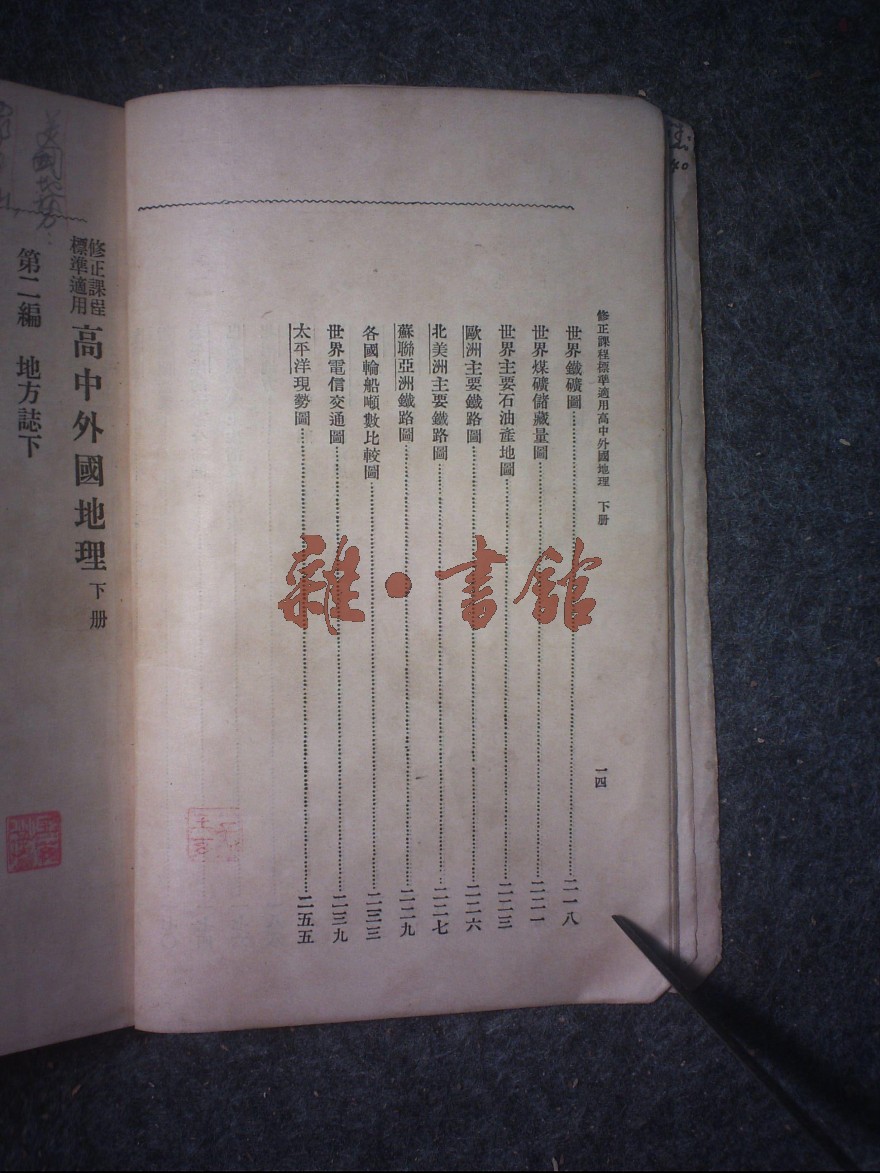 修正課程標準適用高中外國地理 下册
一四
世界鐵礦圖……二一八
世界煤礦儲藏量圖……二二一
世界主要石油產地圖……二二三
歐洲主要鐵路圖……二二六
北美洲主要鐵路圖……二二七
蘇聯亞洲鐵路圖……二二九
各國輪船噸數比較圖……二三三
世界電信交通圖……二三九
太平洋現勢圖……二五五
雜·書館
修正課程
標準適用
高中外國地理 下册
第二編 地方誌下
美國地